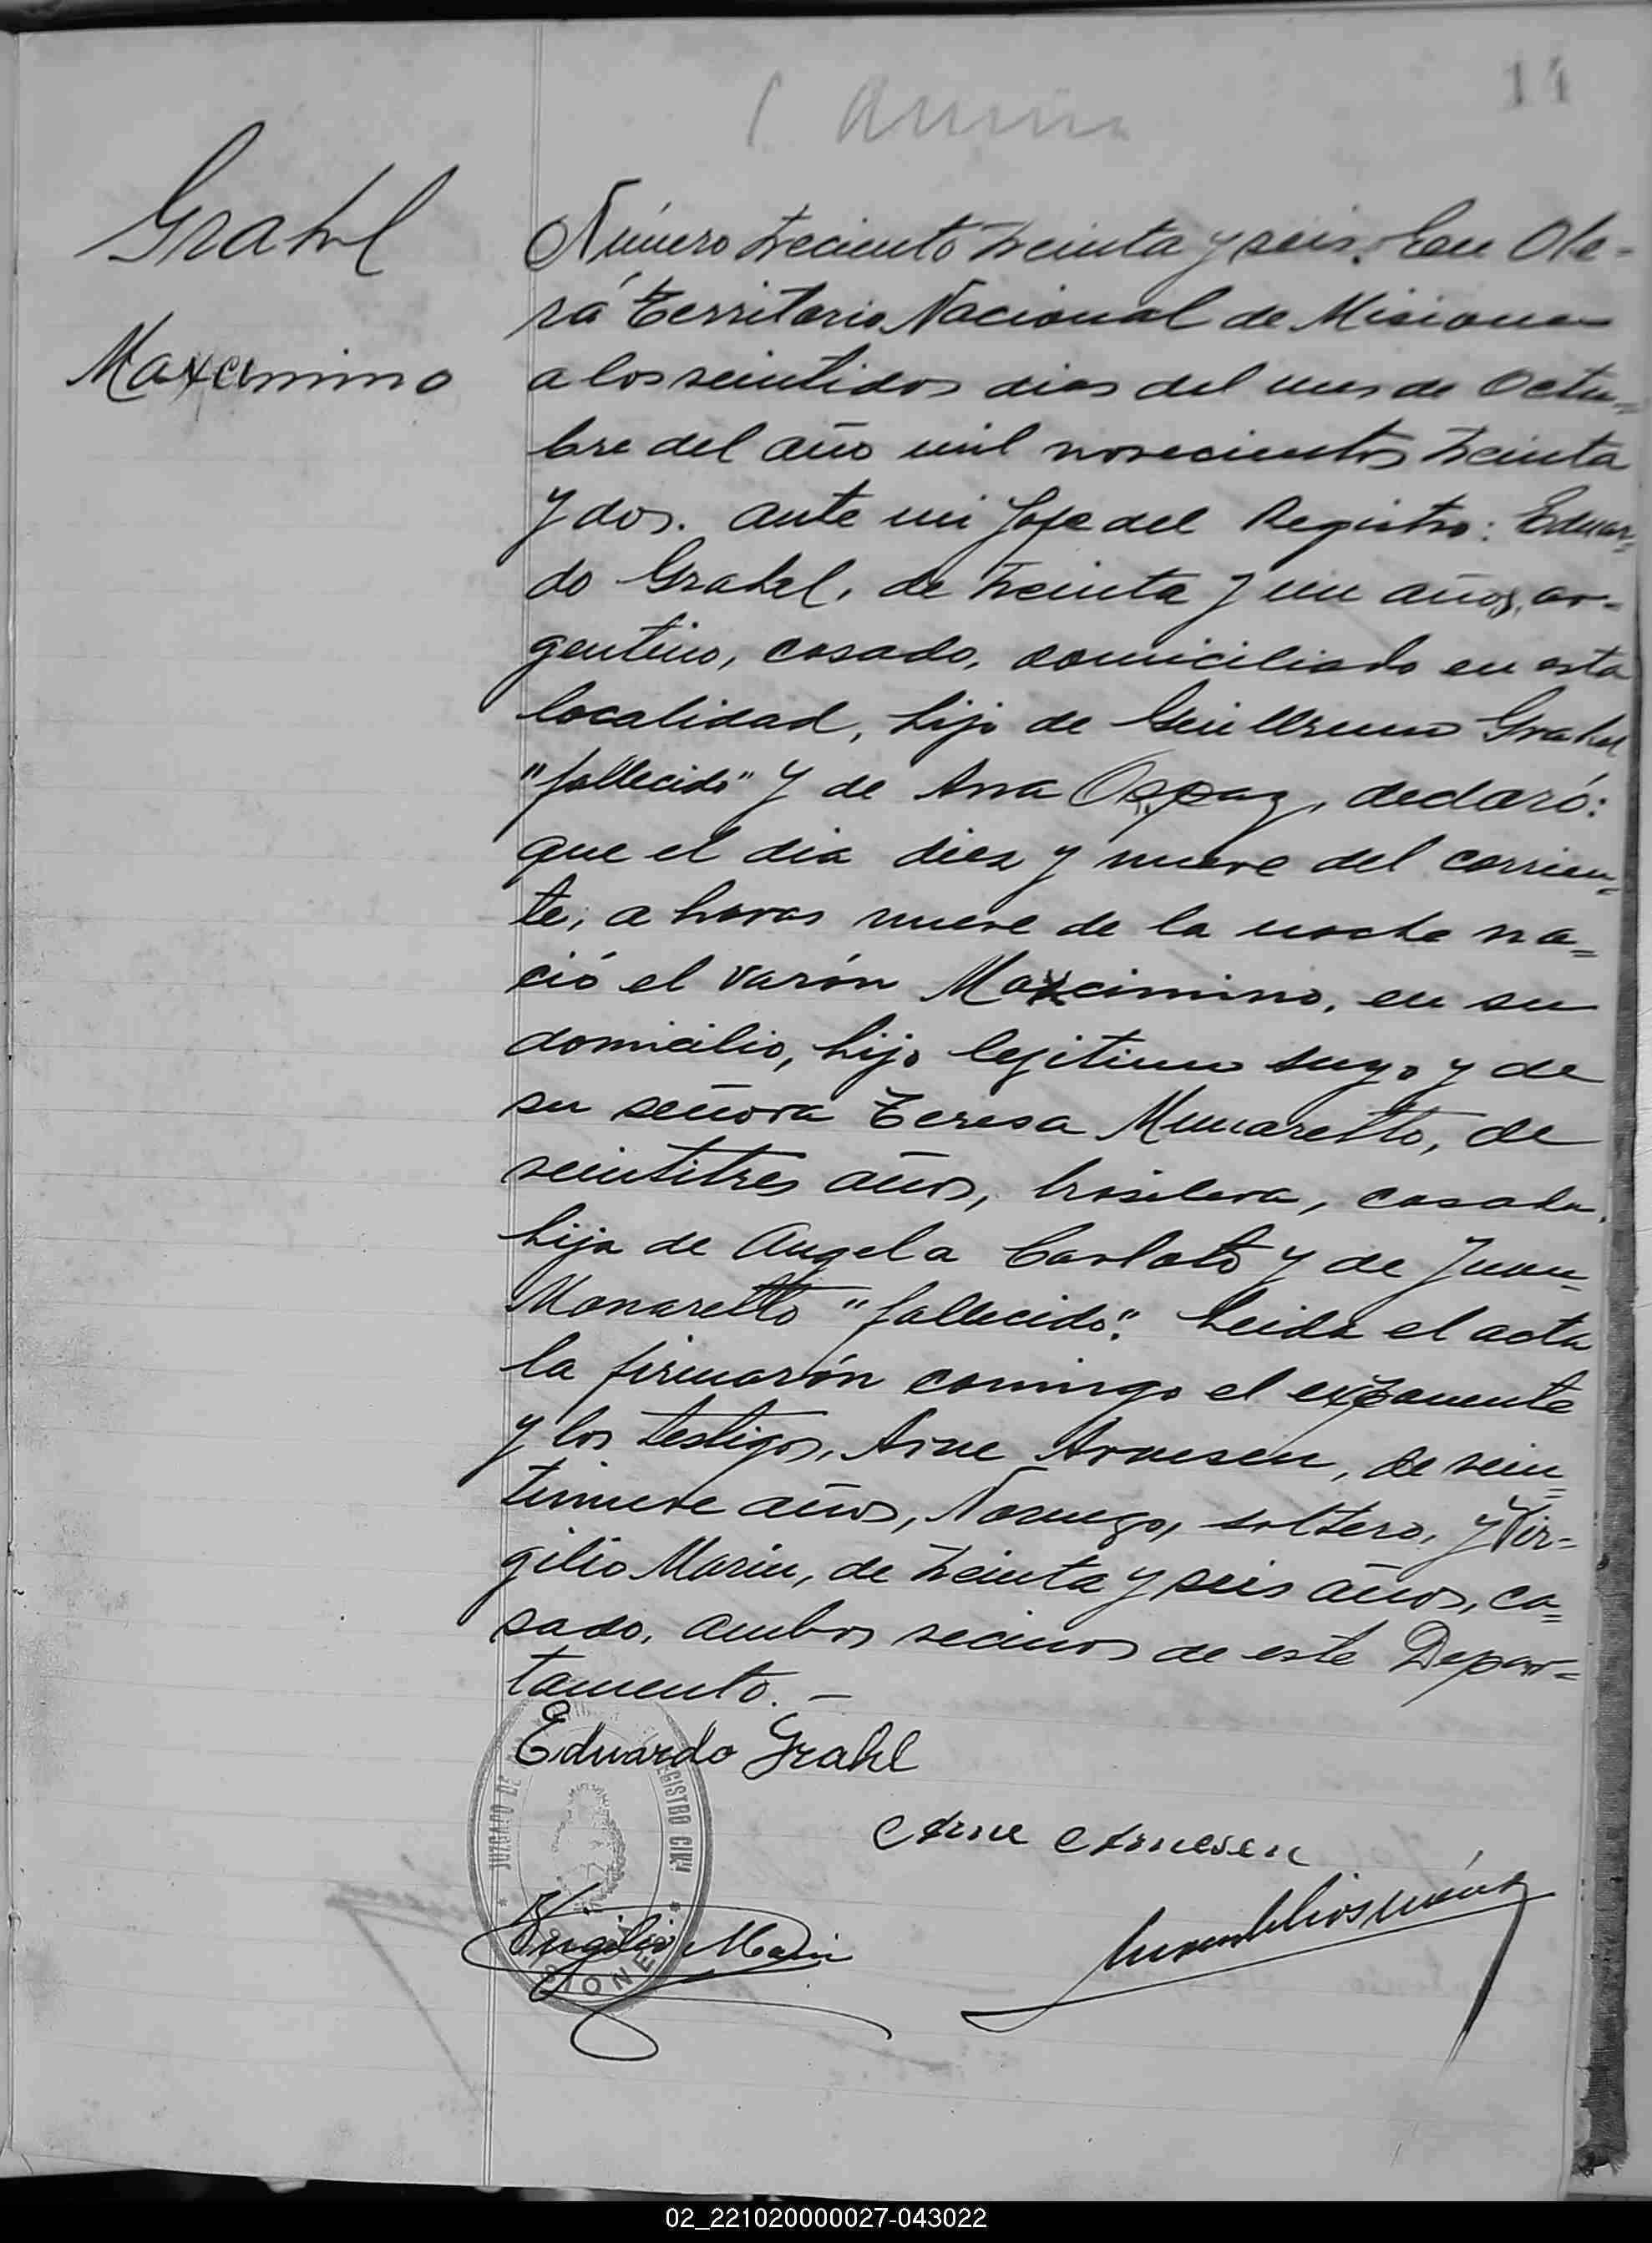 14
Grahl
Maxcimino
Número treciento treinta y seis. En Obe-
rá Territorio Nacional de Misiones
a los veintidos dias del mes de Octu-
bre del año mil novecientos treinta
y dos. ante mi Jefe del Registro: Eduar-
do Grahel, de treinta y un años, ar-
gentino, casado, domiciliado en esta
localidad, hijo de Guillermo Grahel
"fallecido" y de Ana, declaró:
que el dia diez y nueve del corrien-
te, a horas nueve de la noche na-
ció el varón Maxcimino, en su
domicilio, hijo legitimo suyo y de
su señora Teresa Munaretto, de
veintitres años, brasilera, casada,
hija de Angela Carloto y de Juan
Monaretto "fallecido". Leida el acta
la firmarón conmigo el exponente
y los testigos, Arne Arnesen, de vein-
tinueve años, Noruego, soltero, y Vir-
gilio Marin, de treinta y seis años, ca-
sado, ambos vecinos de este Depar-
tamento. —
Eduardo Grahl
JUZGADO DE REGISTRO CIVIL
MISIONES
Arne Arnesen
Virgilio Marin
02_221020000027-043022